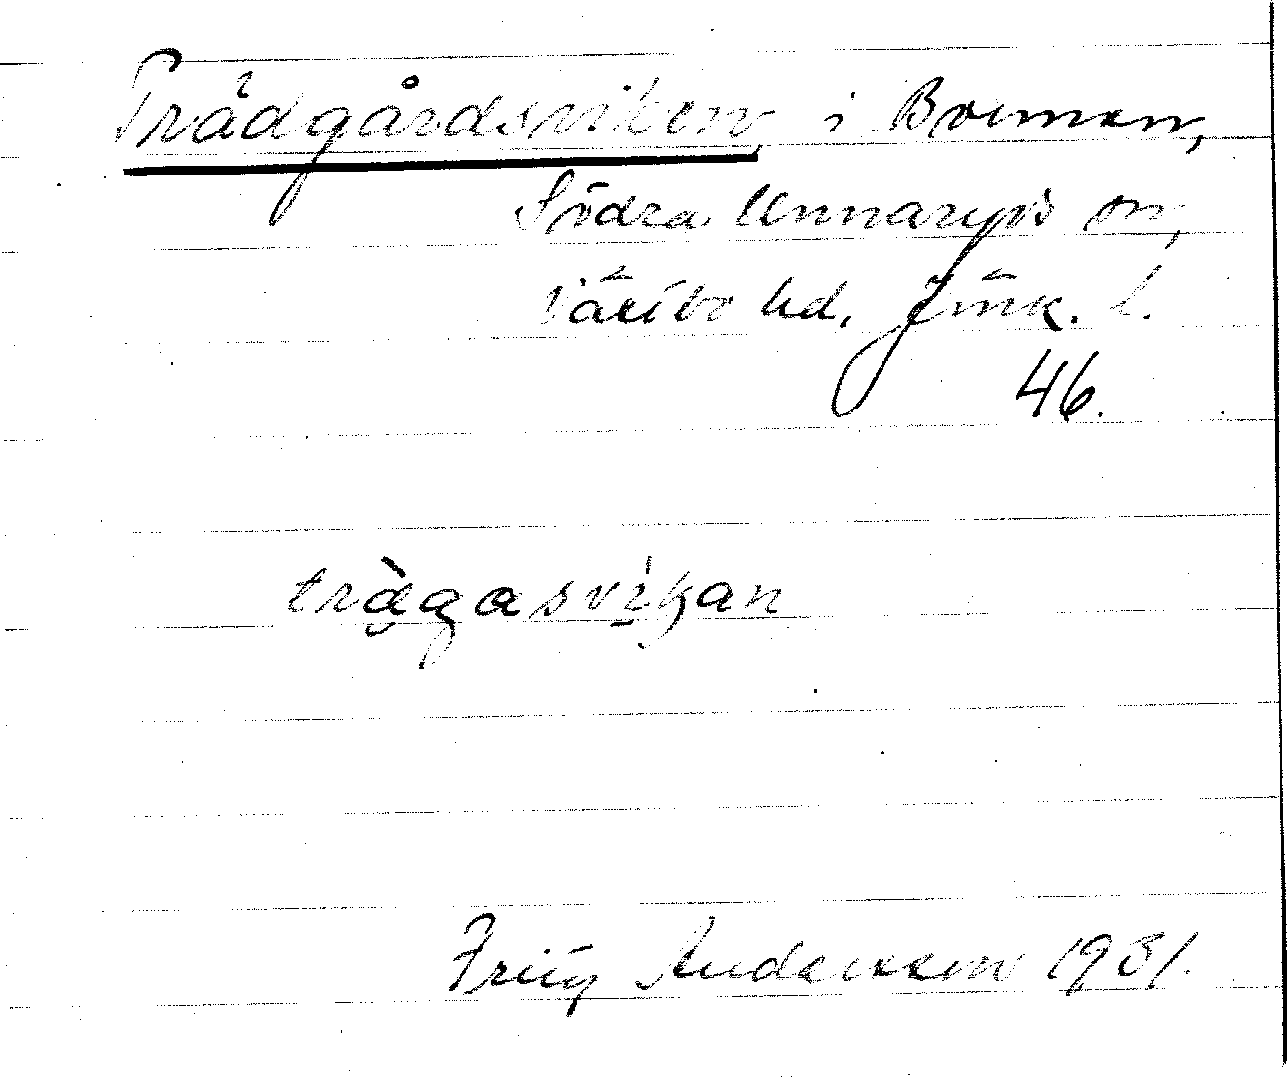 Trädgårdsviken, i Bolmen,
Södra Unnaryds sn,
Västbo hd, Jönk. l.
46.
trägasvikan
Fritz Andersson 1931.